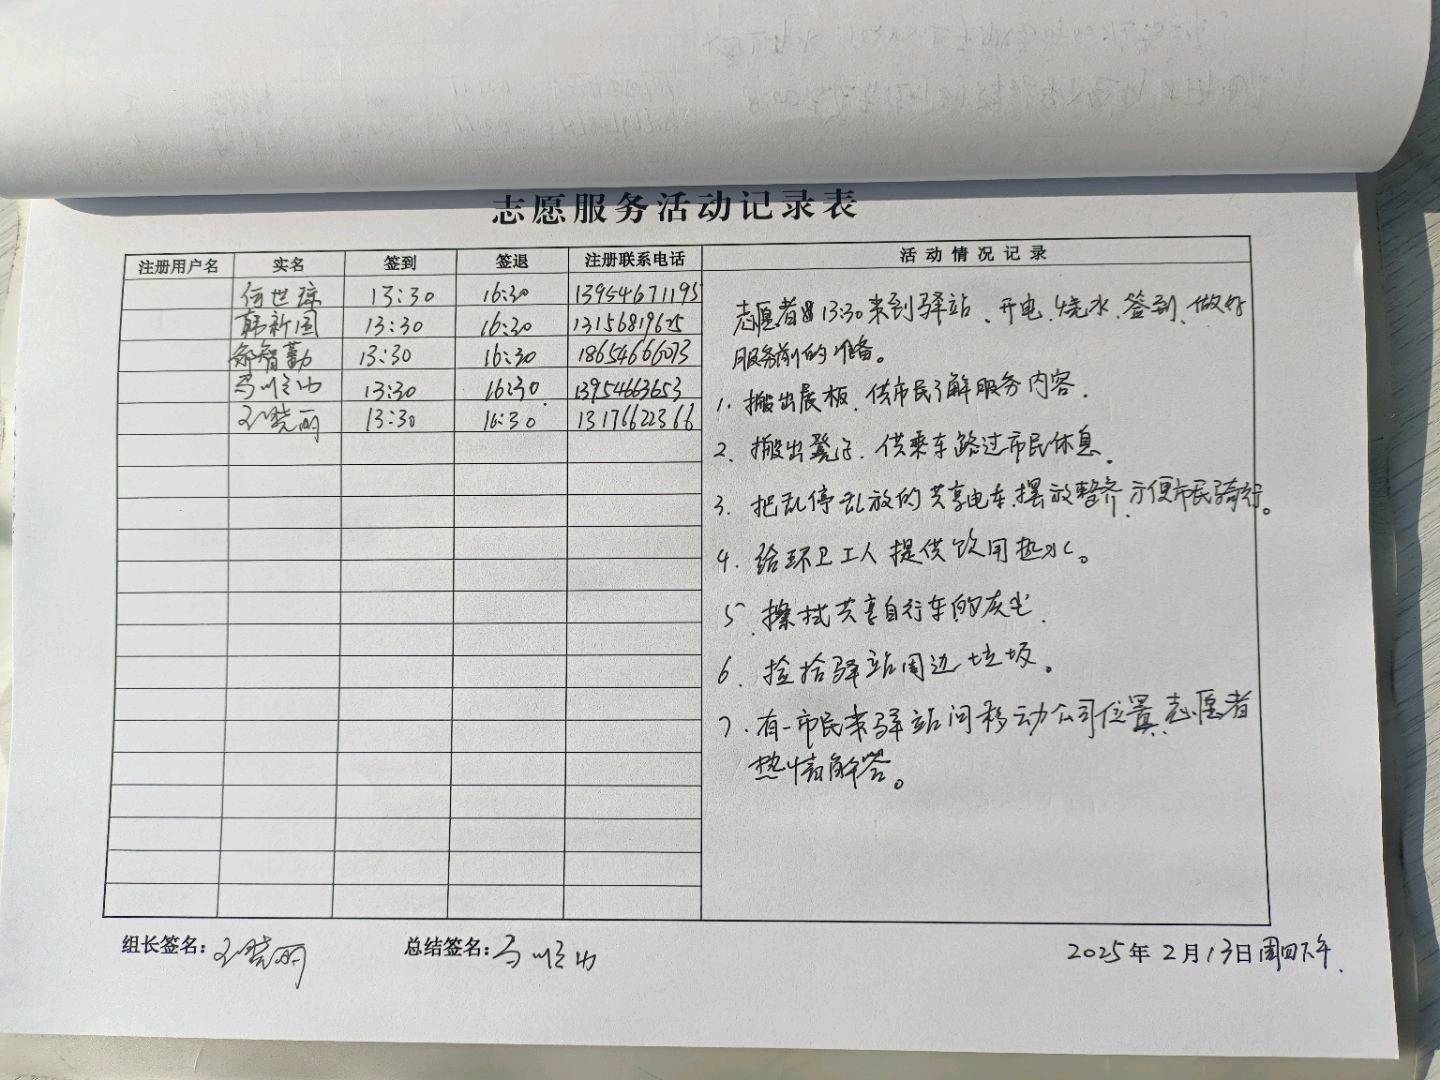 志愿服务活动记录表
注册用户名 实名 签到 签退 注册联系电话 活动情况记录
何世琼 13:30 16:30 13954671195
韩新国 13:30 16:30 13156819625
智勤 13:30 16:30 18654666073
马顺山 13:30 16:30 13954663653
晓丽 13:30 16:30 13176622366
志愿者13:30来到驿站、开电、烧水、签到、做好
服务前的准备。
1、搬出展板、供市民了解服务内容.
2、搬出凳子、供乘车路过市民休息.
3、把乱停乱放的共享电车摆放整齐、方便市民骑行。
4、给环卫工人提供饮用热水。
5、擦拭共享自行车的灰尘.
6、捡拾驿站周边垃圾。
7、有一市民来驿站问移动公司位置、志愿者
热情解答。
组长签名：晓丽 总结签名：马顺山 2025年2月13日周四下午.